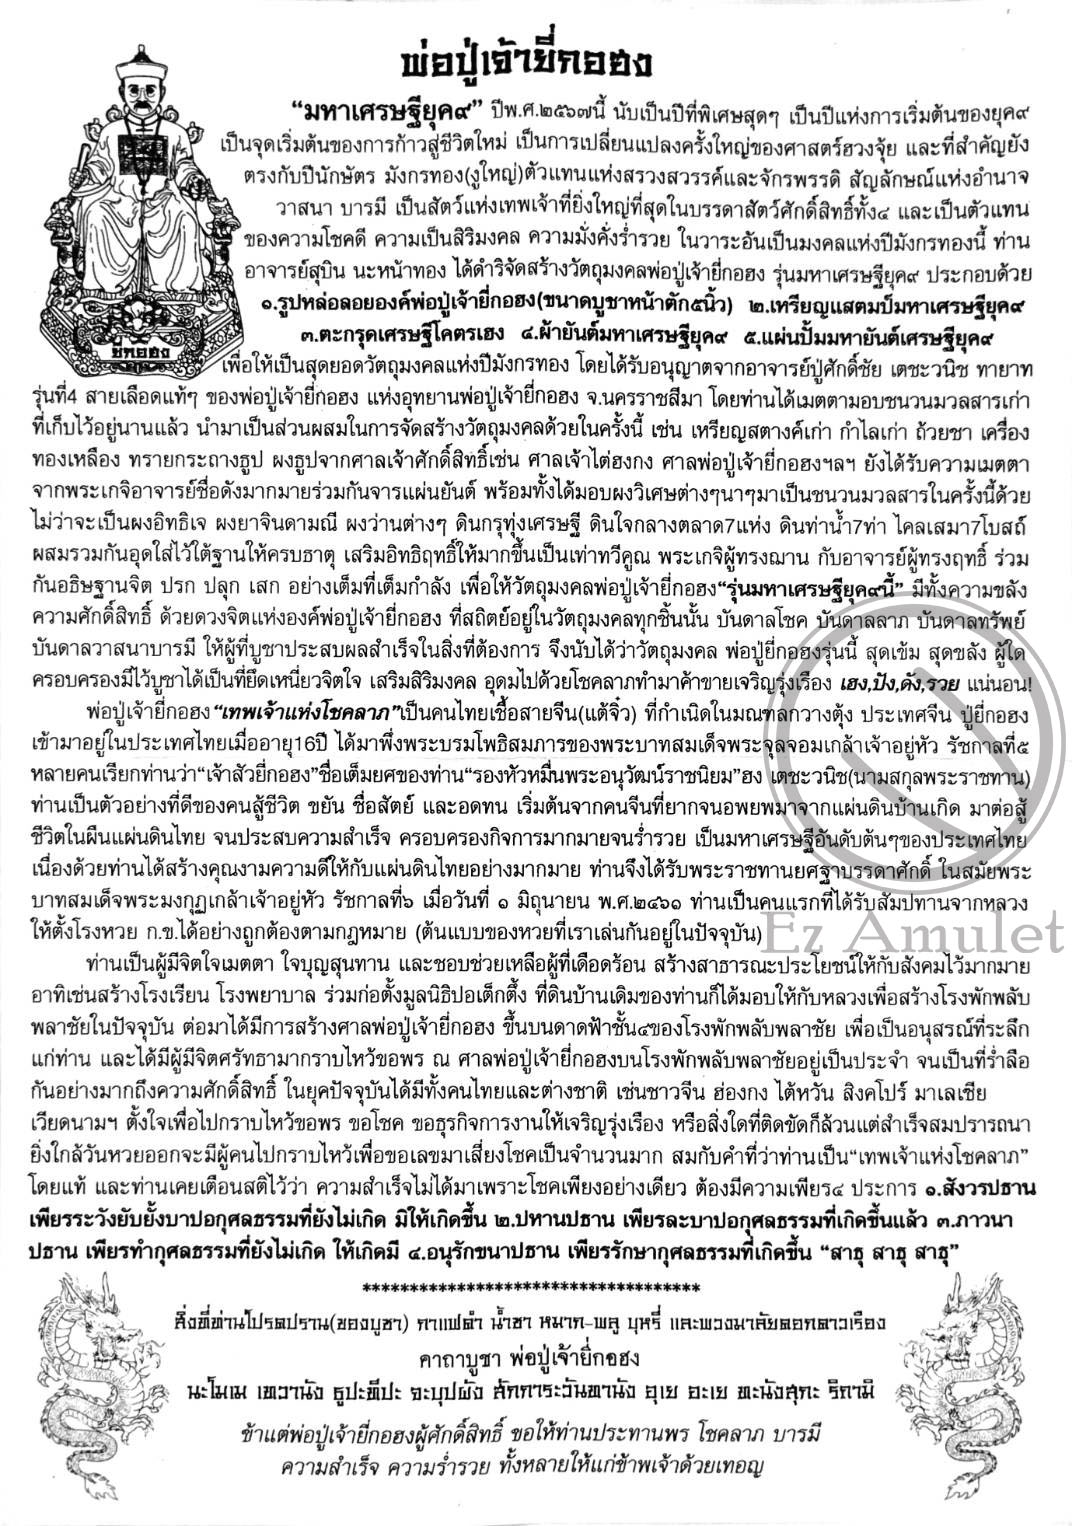 พ่อปู่เจ้ายี่กอฮง
“มหาเศรษฐียุค๙” ปีพ.ศ.๒๕๖๗นี้ นับเป็นปีที่พิเศษสุดๆ เป็นปีแห่งการเริ่มต้นของยุค๙
เป็นจุดเริ่มต้นของการก้าวสู่ชีวิตใหม่ เป็นการเปลี่ยนแปลงครั้งใหญ่ของศาสตร์ฮวงจุ้ย และที่สำคัญยัง
ตรงกับปีนักษัตร มังกรทอง(งูใหญ่)ตัวแทนแห่งสรวงสวรรค์และจักรพรรดิ สัญลักษณ์แห่งอำนาจ
วาสนา บารมี เป็นสัตว์แห่งเทพเจ้าที่ยิ่งใหญ่ที่สุดในบรรดาสัตว์ศักดิ์สิทธิ์ทั้ง๔ และเป็นตัวแทน
ของความโชคดี ความเป็นสิริมงคล ความมั่งคั่งร่ำรวย ในวาระอันเป็นมงคลแห่งปีมังกรทองนี้ ท่าน
อาจารย์สุบิน นะหน้าทอง ได้ดำริจัดสร้างวัตถุมงคลพ่อปู่เจ้ายี่กอฮง รุ่นมหาเศรษฐียุค๙ ประกอบด้วย
๑.รูปหล่อลอยองค์พ่อปู่เจ้ายี่กอฮง(ขนาดบูชาหน้าตัก๕นิ้ว) ๒.เหรียญแสตมป์มหาเศรษฐียุค๙
๓.ตะกรุดเศรษฐีโคตรเฮง ๔.ผ้ายันต์มหาเศรษฐียุค๙ ๕.แผ่นปั้มมหายันต์เศรษฐียุค๙
ยี่กอฮง
เพื่อให้เป็นสุดยอดวัตถุมงคลแห่งปีมังกรทอง โดยได้รับอนุญาตจากอาจารย์ปู่ศักดิ์ชัย เตชะวนิช ทายาท
รุ่นที่4 สายเลือดแท้ๆ ของพ่อปู่เจ้ายี่กอฮง แห่งอุทยานพ่อปู่เจ้ายี่กอฮง จ.นครราชสีมา โดยท่านได้เมตตามอบชนวนมวลสารเก่า
ที่เก็บไว้อยู่นานแล้ว นำมาเป็นส่วนผสมในการจัดสร้างวัตถุมงคลด้วยในครั้งนี้ เช่น เหรียญสตางค์เก่า กำไลเก่า ถ้วยชา เครื่อง
ทองเหลือง ทรายกระถางธูป ผงธูปจากศาลเจ้าศักดิ์สิทธิ์เช่น ศาลเจ้าไต่ฮงกง ศาลพ่อปู่เจ้ายี่กอฮงฯลฯ ยังได้รับความเมตตา
จากพระเกจิอาจารย์ชื่อดังมากมายร่วมกันจารแผ่นยันต์ พร้อมทั้งได้มอบผงวิเศษต่างๆนาๆมาเป็นชนวนมวลสารในครั้งนี้ด้วย
ไม่ว่าจะเป็นผงอิทธิเจ ผงยาจินดามณี ผงว่านต่างๆ ดินกรุทุ่งเศรษฐี ดินใจกลางตลาด7แห่ง ดินท่าน้ำ7ท่า ไคลเสมา7โบสถ์
ผสมรวมกันอุดใส่ไว้ใต้ฐานให้ครบธาตุ เสริมอิทธิฤทธิ์ให้มากขึ้นเป็นเท่าทวีคูณ พระเกจิผู้ทรงฌาน กับอาจารย์ผู้ทรงฤทธิ์ ร่วม
กันอธิษฐานจิต ปรก ปลุก เสก อย่างเต็มที่เต็มกำลัง เพื่อให้วัตถุมงคลพ่อปู่เจ้ายี่กอฮง“รุ่นมหาเศรษฐียุค๙นี้” มีทั้งความขลัง
ความศักดิ์สิทธิ์ ด้วยดวงจิตแห่งองค์พ่อปู่เจ้ายี่กอฮง ที่สถิตย์อยู่ในวัตถุมงคลทุกชิ้นนั้น บันดาลโชค บันดาลลาภ บันดาลทรัพย์
บันดาลวาสนาบารมี ให้ผู้ที่บูชาประสบผลสำเร็จในสิ่งที่ต้องการ จึงนับได้ว่าวัตถุมงคล พ่อปู่ยี่กอฮงรุ่นนี้ สุดเข้ม สุดขลัง ผู้ใด
ครอบครองมีไว้บูชาได้เป็นที่ยึดเหนี่ยวจิตใจ เสริมสิริมงคล อุดมไปด้วยโชคลาภทำมาค้าขายเจริญรุ่งเรือง เฮง,ปัง,ดัง,รวย แน่นอน!
พ่อปู่เจ้ายี่กอฮง“เทพเจ้าแห่งโชคลาภ”เป็นคนไทยเชื้อสายจีน(แต้จิ๋ว) ที่กำเนิดในมณฑลกวางตุ้ง ประเทศจีน ปู่ยี่กอฮง
เข้ามาอยู่ในประเทศไทยเมื่ออายุ16ปี ได้มาพึ่งพระบรมโพธิสมภารของพระบาทสมเด็จพระจุลจอมเกล้าเจ้าอยู่หัว รัชกาลที่๕
หลายคนเรียกท่านว่า“เจ้าสัวยี่กอฮง”ชื่อเต็มยศของท่าน“รองหัวหมื่นพระอนุวัฒน์ราชนิยม”ฮง เตชะวนิช(นามสกุลพระราชทาน)
ท่านเป็นตัวอย่างที่ดีของคนสู้ชีวิต ขยัน ซื่อสัตย์ และอดทน เริ่มต้นจากคนจีนที่ยากจนอพยพมาจากแผ่นดินบ้านเกิด มาต่อสู้
ชีวิตในผืนแผ่นดินไทย จนประสบความสำเร็จ ครอบครองกิจการมากมายจนร่ำรวย เป็นมหาเศรษฐีอันดับต้นๆของประเทศไทย
เนื่องด้วยท่านได้สร้างคุณงามความดีให้กับแผ่นดินไทยอย่างมากมาย ท่านจึงได้รับพระราชทานยศฐาบรรดาศักดิ์ ในสมัยพระ
บาทสมเด็จพระมงกุฎเกล้าเจ้าอยู่หัว รัชกาลที่๖ เมื่อวันที่ ๑ มิถุนายน พ.ศ.๒๔๖๑ ท่านเป็นคนแรกที่ได้รับสัมปทานจากหลวง
ให้ตั้งโรงหวย ก.ข.ได้อย่างถูกต้องตามกฎหมาย (ต้นแบบของหวยที่เราเล่นกันอยู่ในปัจจุบัน)
Ez Amulet
ท่านเป็นผู้มีจิตใจเมตตา ใจบุญสุนทาน และชอบช่วยเหลือผู้ที่เดือดร้อน สร้างสาธารณะประโยชน์ให้กับสังคมไว้มากมาย
อาทิเช่นสร้างโรงเรียน โรงพยาบาล ร่วมก่อตั้งมูลนิธิปอเต็กตึ๊ง ที่ดินบ้านเดิมของท่านก็ได้มอบให้กับหลวงเพื่อสร้างโรงพักพลับ
พลาชัยในปัจจุบัน ต่อมาได้มีการสร้างศาลพ่อปู่เจ้ายี่กอฮง ขึ้นบนดาดฟ้าชั้น๔ของโรงพักพลับพลาชัย เพื่อเป็นอนุสรณ์ที่ระลึก
แก่ท่าน และได้มีผู้มีจิตศรัทธามากราบไหว้ขอพร ณ ศาลพ่อปู่เจ้ายี่กอฮงบนโรงพักพลับพลาชัยอยู่เป็นประจำ จนเป็นที่ร่ำลือ
กันอย่างมากถึงความศักดิ์สิทธิ์ ในยุคปัจจุบันได้มีทั้งคนไทยและต่างชาติ เช่นชาวจีน ฮ่องกง ไต้หวัน สิงคโปร์ มาเลเซีย
เวียดนามฯ ตั้งใจเพื่อไปกราบไหว้ขอพร ขอโชค ขอธุรกิจการงานให้เจริญรุ่งเรือง หรือสิ่งใดที่ติดขัดก็ล้วนแต่สำเร็จสมปรารถนา
ยิ่งใกล้วันหวยออกจะมีผู้คนไปกราบไหว้เพื่อขอเลขมาเสี่ยงโชคเป็นจำนวนมาก สมกับคำที่ว่าท่านเป็น“เทพเจ้าแห่งโชคลาภ”
โดยแท้ และท่านเคยเตือนสติไว้ว่า ความสำเร็จไม่ได้มาเพราะโชคเพียงอย่างเดียว ต้องมีความเพียร๔ ประการ ๑.สังวรปธาน
เพียรระวังยับยั้งบาปอกุศลธรรมที่ยังไม่เกิด มิให้เกิดขึ้น ๒.ปหานปธาน เพียรละบาปอกุศลธรรมที่เกิดขึ้นแล้ว ๓.ภาวนา
ปธาน เพียรทำกุศลธรรมที่ยังไม่เกิด ให้เกิดมี ๔.อนุรักขนาปธาน เพียรรักษากุศลธรรมที่เกิดขึ้น “สาธุ สาธุ สาธุ”
************************************
สิ่งที่ท่านโปรดปราน(ของบูชา) กาแฟดำ น้ำชา หมาก-พลู บุหรี่ และพวงมาลัยดอกดาวเรือง
คาถาบูชา พ่อปู่เจ้ายี่กอฮง
นะโมเม เทวานัง ธูปะทีปะ จะบุปผัง สักการะวันทานัง อุเย อะเย ทะนังสุกะ ริกามิ
ข้าแต่พ่อปู่เจ้ายี่กอฮงผู้ศักดิ์สิทธิ์ ขอให้ท่านประทานพร โชคลาภ บารมี
ความสำเร็จ ความร่ำรวย ทั้งหลายให้แก่ข้าพเจ้าด้วยเทอญ